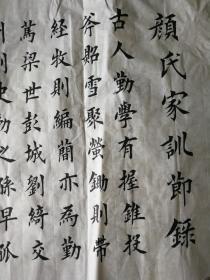 顔氏家訓節錄
古人勤學有握錐投
斧照雪聚螢鋤則帶
經牧則編簡亦為勤
篤梁世彭城劉綺交
州刺史勃之孫早孤